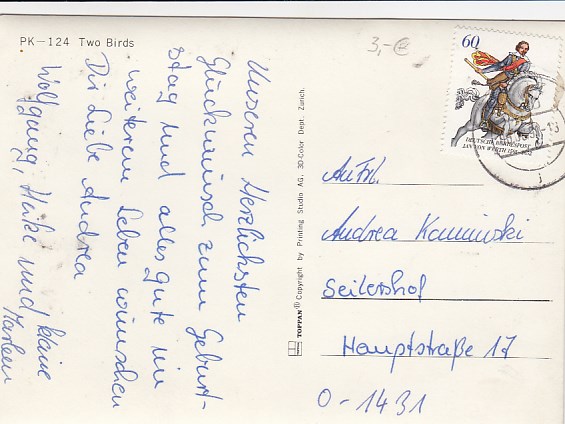 PK-124 Two Birds
3,-€
Unseren Herzlichsten
Glückwunsch zum Geburt-
stag und alles gute im
weiterem Leben wünschen
Dir liebe Andrea
Wolfgang, Heike und kleine
60
DEUTSCHE BUNDESPOST
JAN VON WERTH 1591-1652
TOPPAN® Copyright by Printing Studio AG, 3D-Color Dept. Zürich.
An Frl.
Andrea Kaminski
Seilershof
Hauptstraße 17
O-1431